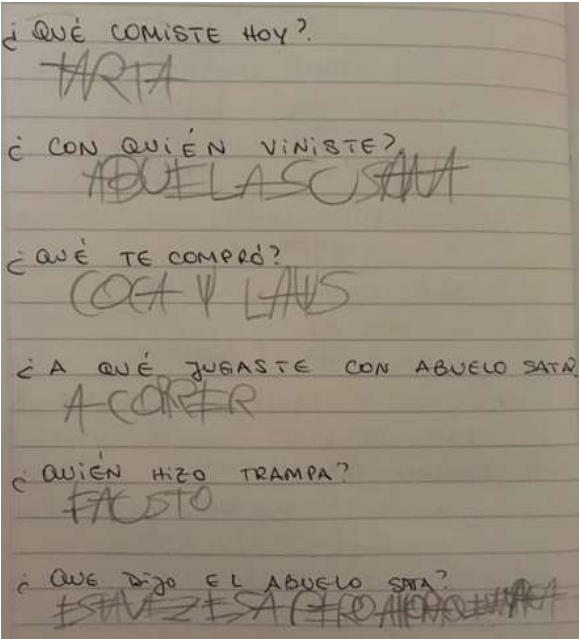 ¿QUÉ COMISTE HOY?
TARTA
¿CON QUIÉN VINISTE?
ABUELA SUSANA
¿QUÉ TE COMPRÓ?
COCA Y LAYS
¿A QUÉ JUGASTE CON ABUELO SATA?
A CORRER
¿QUIÉN HIZO TRAMPA?
FAUSTO
¿QUE DIJO EL ABUELO SATA?
ESTA VEZ ESA PERO